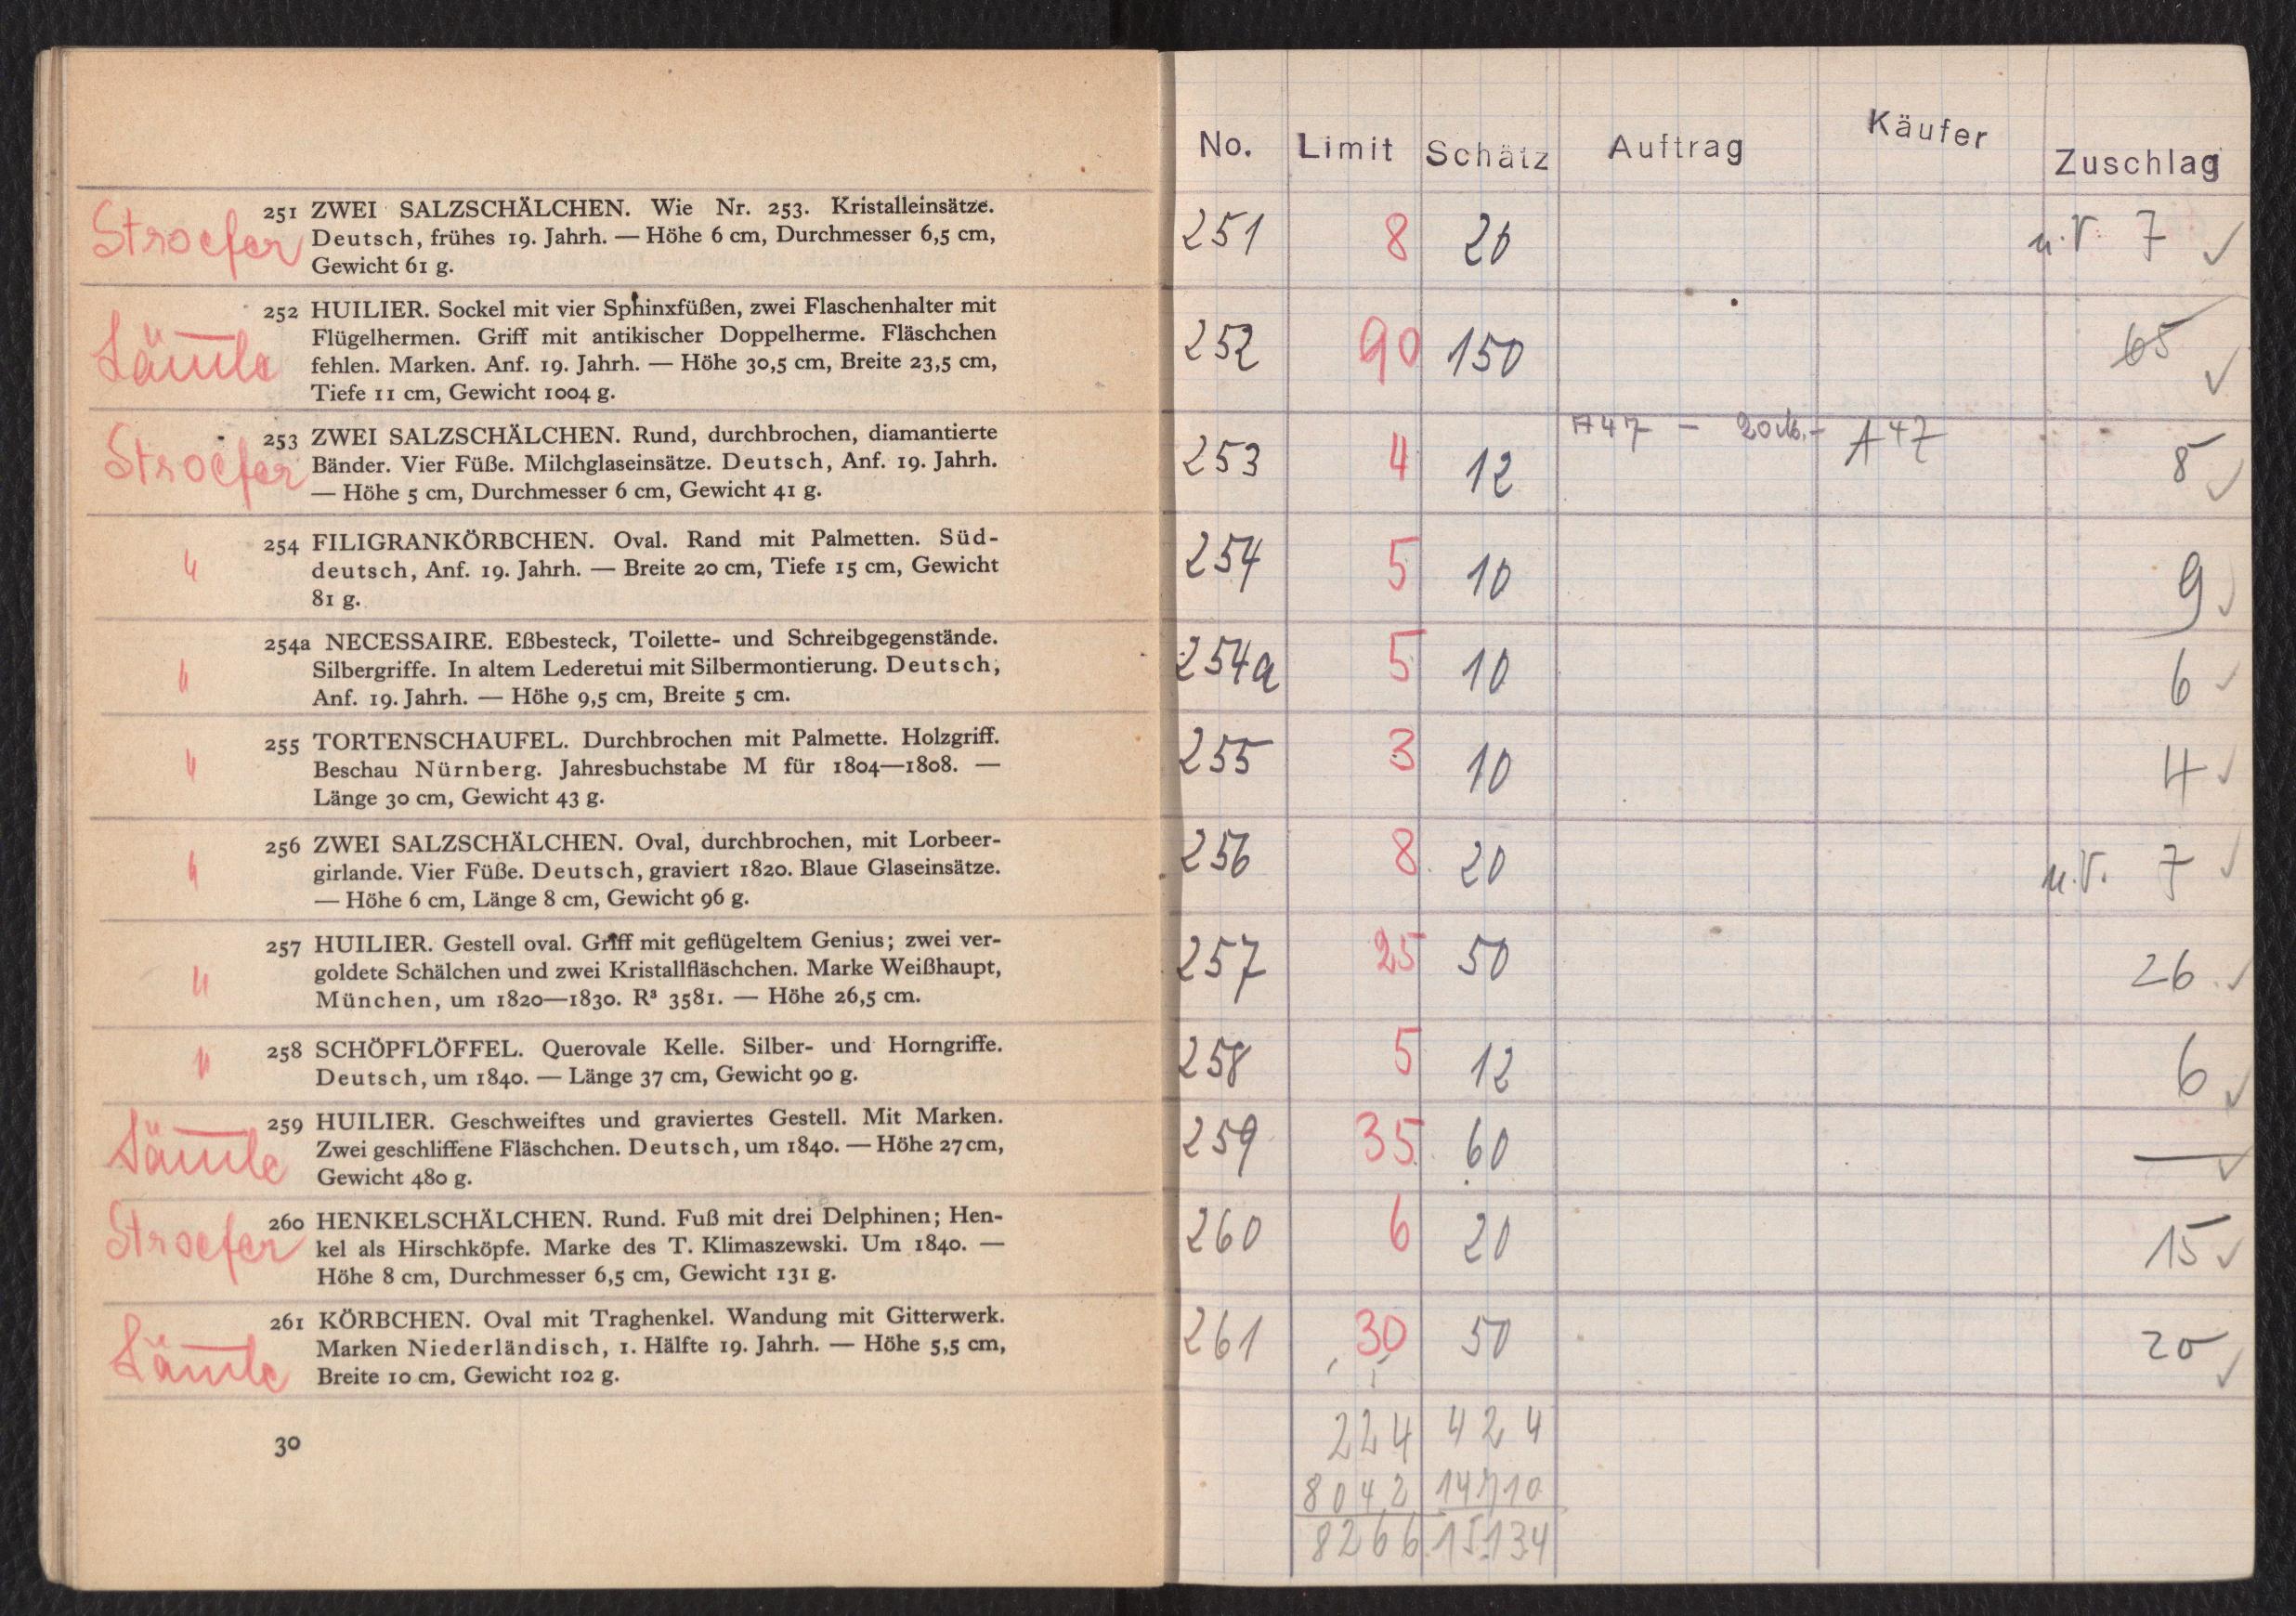 Stroefer
251 ZWEI SALZSCHÄLCHEN. Wie Nr. 253. Kristalleinsätze.
Deutsch, frühes 19. Jahrh. — Höhe 6 cm, Durchmesser 6,5 cm,
Gewicht 61 g.
252 HUILIER. Sockel mit vier Sphinxfüßen, zwei Flaschenhalter mit
Flügelhermen. Griff mit antikischer Doppelherme. Fläschchen
fehlen. Marken. Anf. 19. Jahrh. — Höhe 30,5 cm, Breite 23,5 cm,
Tiefe 11 cm, Gewicht 1004 g.
Stroefer
253 ZWEI SALZSCHÄLCHEN. Rund, durchbrochen, diamantierte
Bänder. Vier Füße. Milchglaseinsätze. Deutsch, Anf. 19. Jahrh.
— Höhe 5 cm, Durchmesser 6 cm, Gewicht 41 g.
"
254 FILIGRANKÖRBCHEN. Oval. Rand mit Palmetten. Süd-
deutsch, Anf. 19. Jahrh. — Breite 20 cm, Tiefe 15 cm, Gewicht
81 g.
"
254a NECESSAIRE. Eßbesteck, Toilette- und Schreibgegenstände.
Silbergriffe. In altem Lederetui mit Silbermontierung. Deutsch,
Anf. 19. Jahrh. — Höhe 9,5 cm, Breite 5 cm.
"
255 TORTENSCHAUFEL. Durchbrochen mit Palmette. Holzgriff.
Beschau Nürnberg. Jahresbuchstabe M für 1804—1808. —
Länge 30 cm, Gewicht 43 g.
"
256 ZWEI SALZSCHÄLCHEN. Oval, durchbrochen, mit Lorbeer-
girlande. Vier Füße. Deutsch, graviert 1820. Blaue Glaseinsätze.
— Höhe 6 cm, Länge 8 cm, Gewicht 96 g.
"
257 HUILIER. Gestell oval. Griff mit geflügeltem Genius; zwei ver-
goldete Schälchen und zwei Kristallfläschchen. Marke Weißhaupt,
München, um 1820—1830. R³ 3581. — Höhe 26,5 cm.
"
258 SCHÖPFLÖFFEL. Querovale Kelle. Silber- und Horngriffe.
Deutsch, um 1840. — Länge 37 cm, Gewicht 90 g.
259 HUILIER. Geschweiftes und graviertes Gestell. Mit Marken.
Zwei geschliffene Fläschchen. Deutsch, um 1840. — Höhe 27 cm,
Gewicht 480 g.
Stroefer
260 HENKELSCHÄLCHEN. Rund. Fuß mit drei Delphinen; Hen-
kel als Hirschköpfe. Marke des T. Klimaszewski. Um 1840. —
Höhe 8 cm, Durchmesser 6,5 cm, Gewicht 131 g.
261 KÖRBCHEN. Oval mit Traghenkel. Wandung mit Gitterwerk.
Marken Niederländisch, 1. Hälfte 19. Jahrh. — Höhe 5,5 cm,
Breite 10 cm, Gewicht 102 g.
30
No. Limit Schätz Auftrag Käufer Zuschlag
251 8 20 u.V. 7 ✓
252 90 150 65 ✓
253 4 12 A 47 – 20 M.– A 47 8 ✓
254 5 10 9 ✓
254a 5 10 6 ✓
255 3 10 4 ✓
256 8 20 u.V. 7 ✓
257 25 50 26 ✓
258 5 12 6 ✓
259 35 60 — ✓
260 6 20 15 ✓
261 30 50 20 ✓
224 424
8042 14710
8266 15134